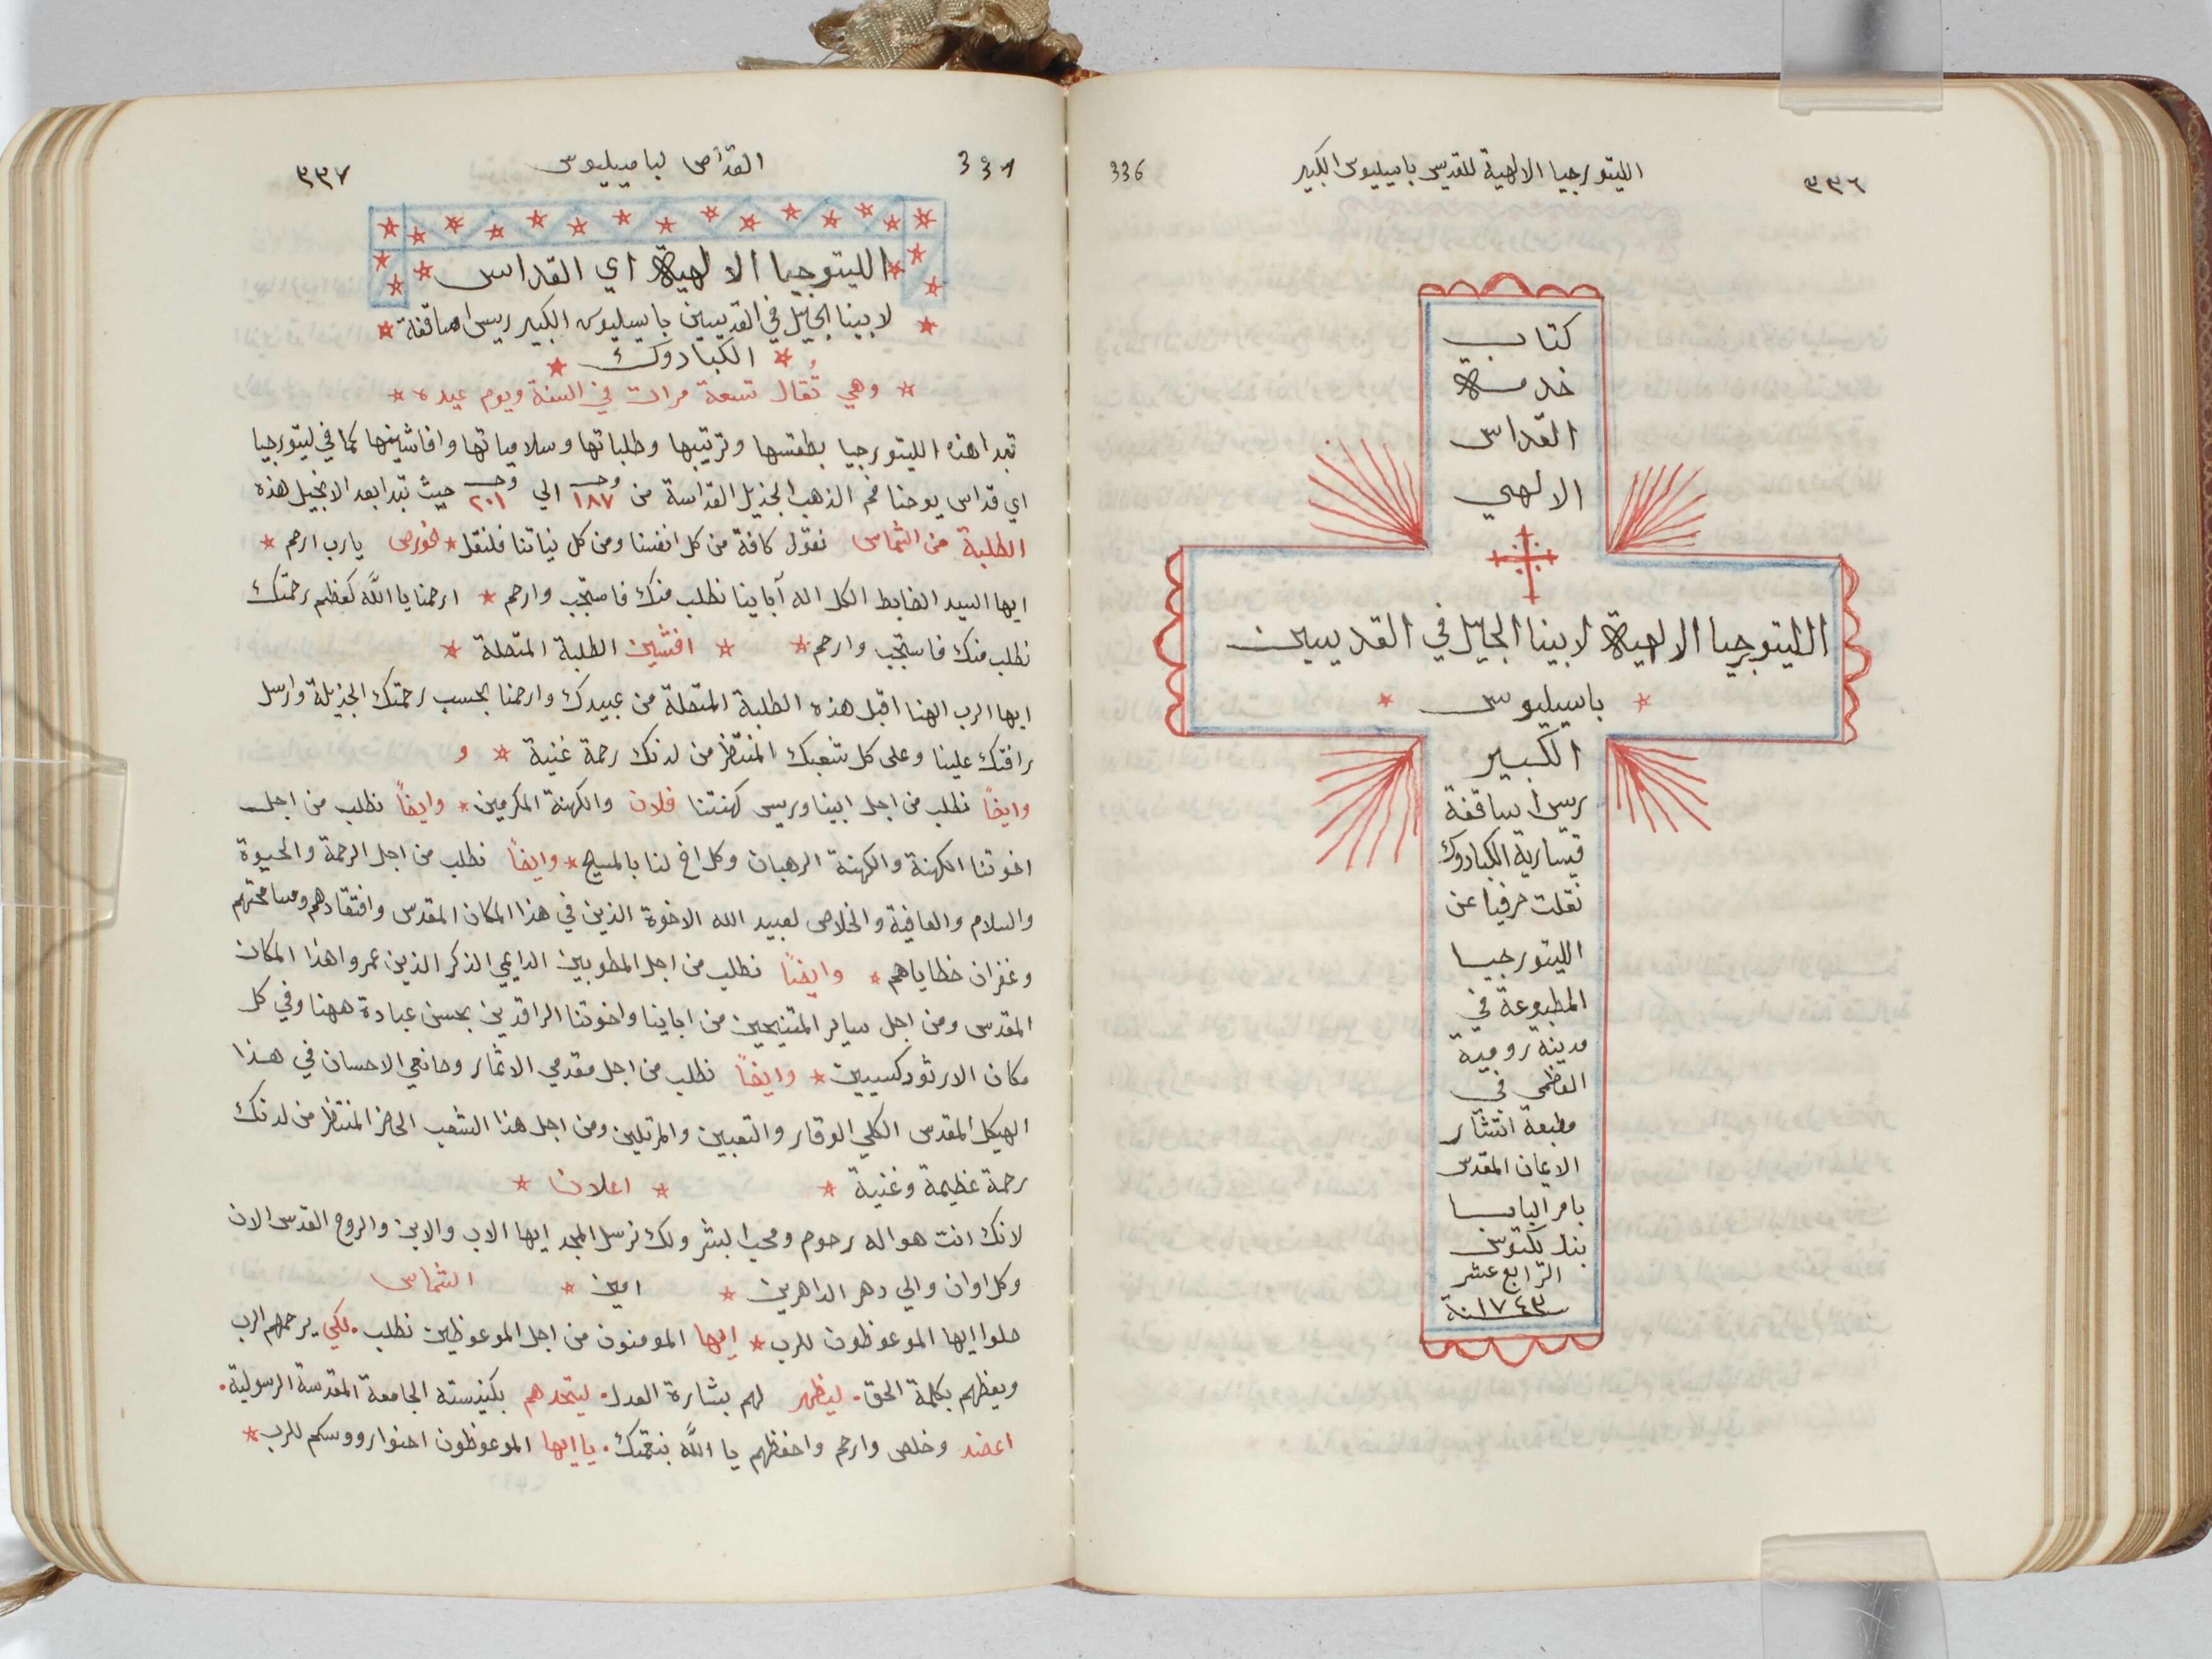 ٣٣٦
الليتورجيا الالهية للقديس باسيليوس الكبير
336
كتاب
خدمة
القداس
الالهي
الليتورجيا الالهية لابينا الجليل في القديسين
باسيليوس
الكبير
ريس اساقفة
قيسارية الكبادوك
نقلت حرفيا عن
الليتورجيا
المطبوعة في
مدينة رومية
العظمى في
مطبعة انتشار
الايمان المقدس
بامر البابا
بندكتوس
الرابع عشر
سنة ١٧٤٣
337
القداس لباسيليوس
٣٣٧
الليتورجيا الالهية اي القداس
لابينا الجليل في القديسين باسيليوس الكبير ريس اساقفة
الكبادوك
وهي تُقال تسعة مرات في السنة ويوم عيده
تبدا هذه الليتورجيا بطقسها وترتيبها وطلباتها وسلامياتها وافاشينها كما في ليتورجيا
اي قداس يوحنا فم الذهب الجذيل القداسة من وجـ ١٨٧ الي وجـ ٢٠١ حيث تبدا بعد الانجيل هذه
الطلبة من الشماس نقول كافة من كل انفسنا ومن كل نياتنا فلنقل * الخورص يارب ارحم *
ايها السيد الضابط الكل اله آباينا نطلب منك فاستجب وارحم * ارحمنا يا اللّه كعظيم رحمتك
نطلب منك فاستجب وارحم * * افشين الطلبة المتصلة *
ايها الرب الهنا اقبل هذه الطلبة المتصلة من عبيدك وارحمنا بحسب رحمتك الجزيلة وارسل
رافتك علينا وعلى كل شعبك المنتظر من لدنك رحمة غنية * و
وايضاً نطلب من اجل ابينا وريس كهنتنا فلان والكهنة المكرمين * وايضاً نطلب من اجل
اخوتنا الكهنة والكهنة الرهبان وكل اخ لنا بالمسيح * وايضاً نطلب من اجل الرحمة والحيوة
والسلام والعافية والخلاص لعبيد الله الاخوة الذين في هذا المكان المقدس وافتقادهم ومسامحتهم
وغفران خطاياهم * وايضاً نطلب من اجل المطوبين الدايمي الذكر الذين عمروا هذا المكان
المقدس ومن اجل ساير المتنيحين من اباينا واخوتنا الراقدين بحسن عبادة ههنا وفي كل
مكان الارثودكسيين * وايضاً نطلب من اجل مقدمي الاثمار وصانعي الاحسان في هذا
الهيكل المقدس الكلي الوقار والتعبين والمرتلين ومن اجل هذا الشعب الحاضر المنتظر من لدنك
رحمة عظيمة وغنية * * اعلان *
لانك انت هو اله رحوم ومحب البشر ولك نرسل المجد ايها الاب والابن والروح القدس الان
وكل اوان والي دهر الداهرين * امين * الشماس
صلوا ايها الموعوظون للرب * ايها المومنون من اجل الموعوظين نطلب. لكي يرحمهم الرب
ويعظهم بكلمة الحق. ليظهر لهم بشارة العدل. ليتحدهم بكنيسته الجامعة المقدسة الرسولية.
اعضد وخلص وارحم واحفظهم يا اللّه بنعمتك. يا ايها الموعوظون احنوا رووسكم للرب *